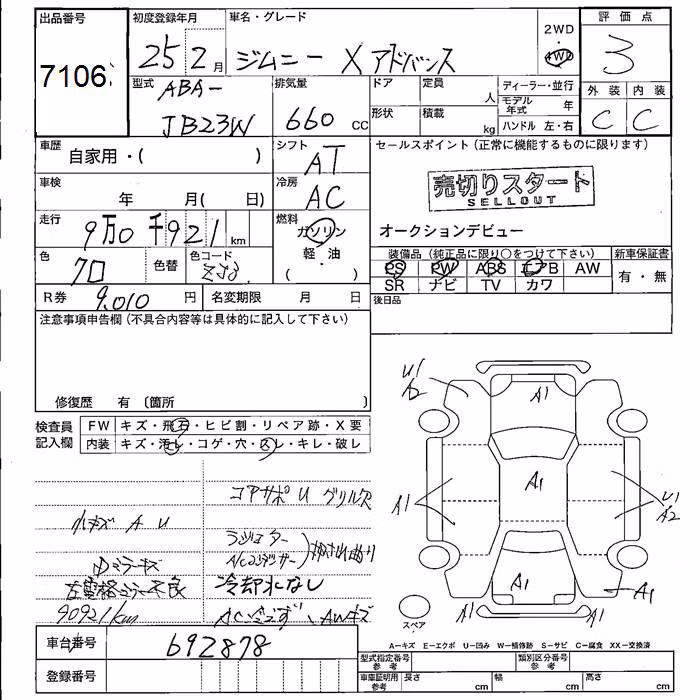 出品番号
7106
初度登録年月
25 2 月
車名・グレード
ジムニー X アドバンス
2WD
4WD
評価点
3
外装 内装
C C
型式
ABA-
JB23W
排気量
660 CC
ドア 定員
人
形状 積載
kg
ディーラー・並行
モデル年式 年
ハンドル 左・右
車歴
自家用・( )
シフト
AT
セールスポイント (正常に機能するものに限ります)
売切りスタート
SELLOUT
オークションデビュー
車検
年 月( 日)
冷房
AC
走行
9万0千921 km
燃料
ガソリン
軽・油
( )
色
クロ
色替
色コード
ZJ3
装備品 (純正品に限り○をつけて下さい)
PS PW ABS エアB AW
SR ナビ TV カワ
新車保証書
有・無
後日品
R券 9,010 円
名変期限 月 日
注意事項申告欄 (不具合内容等は具体的に記入して下さい)
修復歴 有 〔箇所 〕
検査員記入欄
FW キズ・飛石・ヒビ割・リペア跡・X要
内装 キズ・汚レ・コゲ・穴・スレ・キレ・破レ
コアサポU グリル欠
小キズ A U
ラジエター
A/Cコンデンサー
ミラーキズ
左電格ミラー不良
冷却水なし
90921km
AC冷えず、AWキズ
U1
A2
A1
A1
A1
A1
U1
A2
A1
A1
A1
A1
スペア
A=キズ E=エクボ U=凹み W=補修跡 S=サビ C=腐食 XX=交換済
車台番号
692878
登録番号
型式指定番号 参考
類別区分番号 参考
車庫証明用 参考
長さ cm 幅 cm 高さ cm